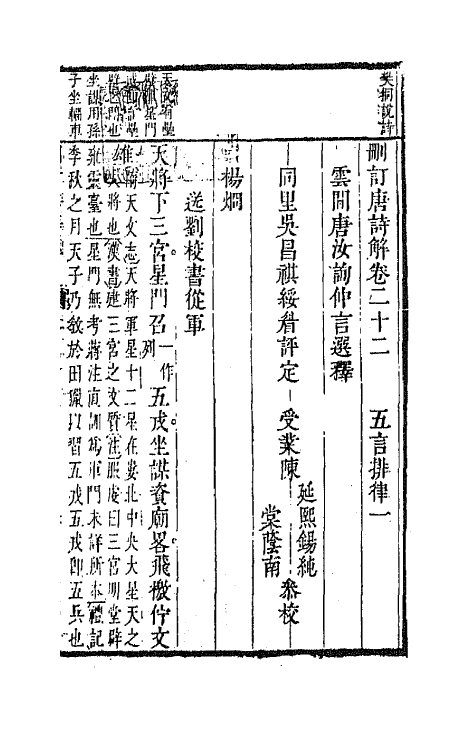 刪訂唐詩解卷二十二　五言排律一
雲間唐汝詢仲言選釋
同里吳昌祺綏眉評定　受業陳延熙錫純棠蔭南參校
楊烱
送劉校書從軍
天將下三宮星門召一作列五戎坐謀資廟畧飛檄佇文
雄　天文志天將軍星十二星在婁北中央大星天之
大將也　漢書建三宮之文質注服虔曰三宮明堂辟
雍靈臺也星門無考蔣注直訓爲軍門未詳所本禮記
季秋之月天子乃敎於田獵以習五戎五戎卽五兵也
星門
坐謀用孫
子坐輜車